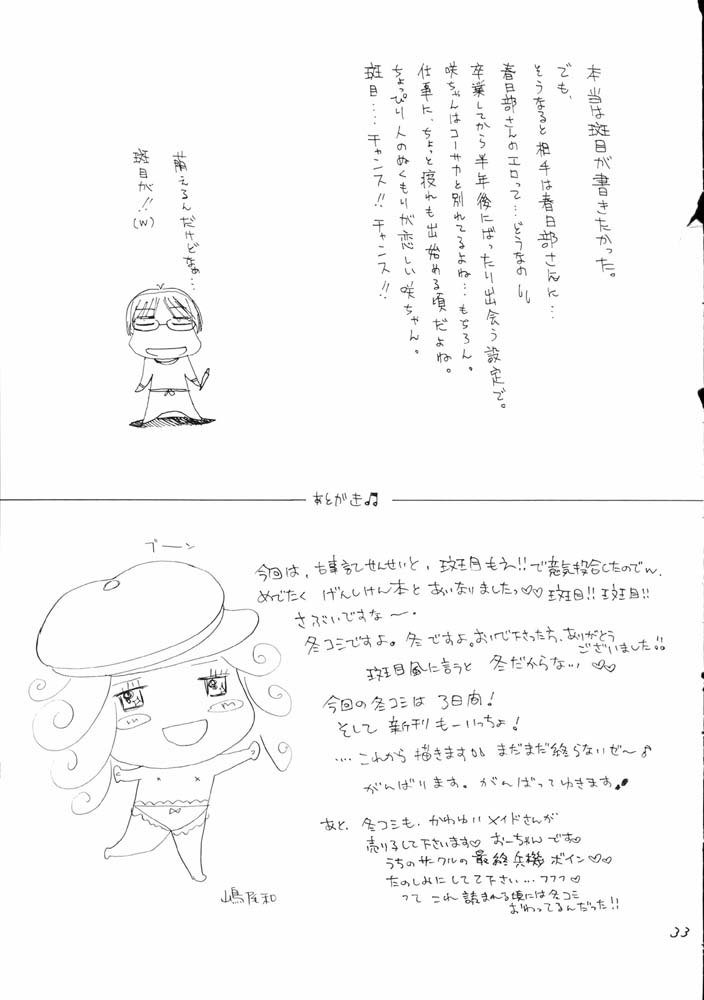 本当は斑目が書きたかった。
でも、
そうなると相手は春日部さんに…
春日部さんのエロって…どうなの
卒業してから半年後にばったり出会う設定で。
咲ちゃんはコーサカと別れてるよね…もちろん。
仕事に、ちょっと疲れも出始める頃だよね。
ちょっぴり人のぬくもりが恋しい咲ちゃん。
斑目…チャンス!!チャンス!!
萌えるんだけどなぁ…
斑目が!!
(w)
あとがき♫
ブーン
今回は、古事記せんせいと、斑目もえ!!で意気投合したのでw、
めでたく げんしけん本と あいなりましたっ♡♡斑目!!斑目!!
さぶいですな〜。
冬コミですよ。冬ですよ。おいで下さった方、ありがとう
ございました!!
斑目風に言うと 冬だからな… ♡♡
今回の冬コミは 3日間!
そして 新刊 もーいっちょ!
…これから描きます まだまだ終らないぜ〜♪
がんばります。がんばってゆきます♪
あと、冬コミも、かわゆいメイドさんが
売り子して下さいます♡ おーちゃんです♡
うちのサークルの最終兵機 ボイン♡♡
たのしみにしてて下さい…フフフ♡
って これ読まれる頃には冬コミ
おわってるんだった!!
嶋尾和
33